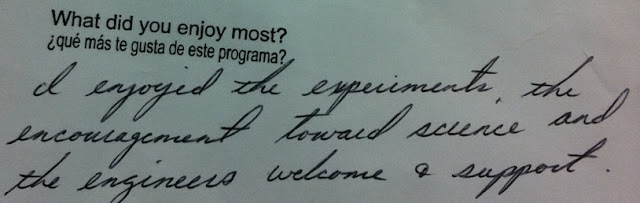 What did you enjoy most?
¿qué más te gusta de este programa?
I enjoyed the experiments, the
encouragement toward science and
the engineers welcome & support.